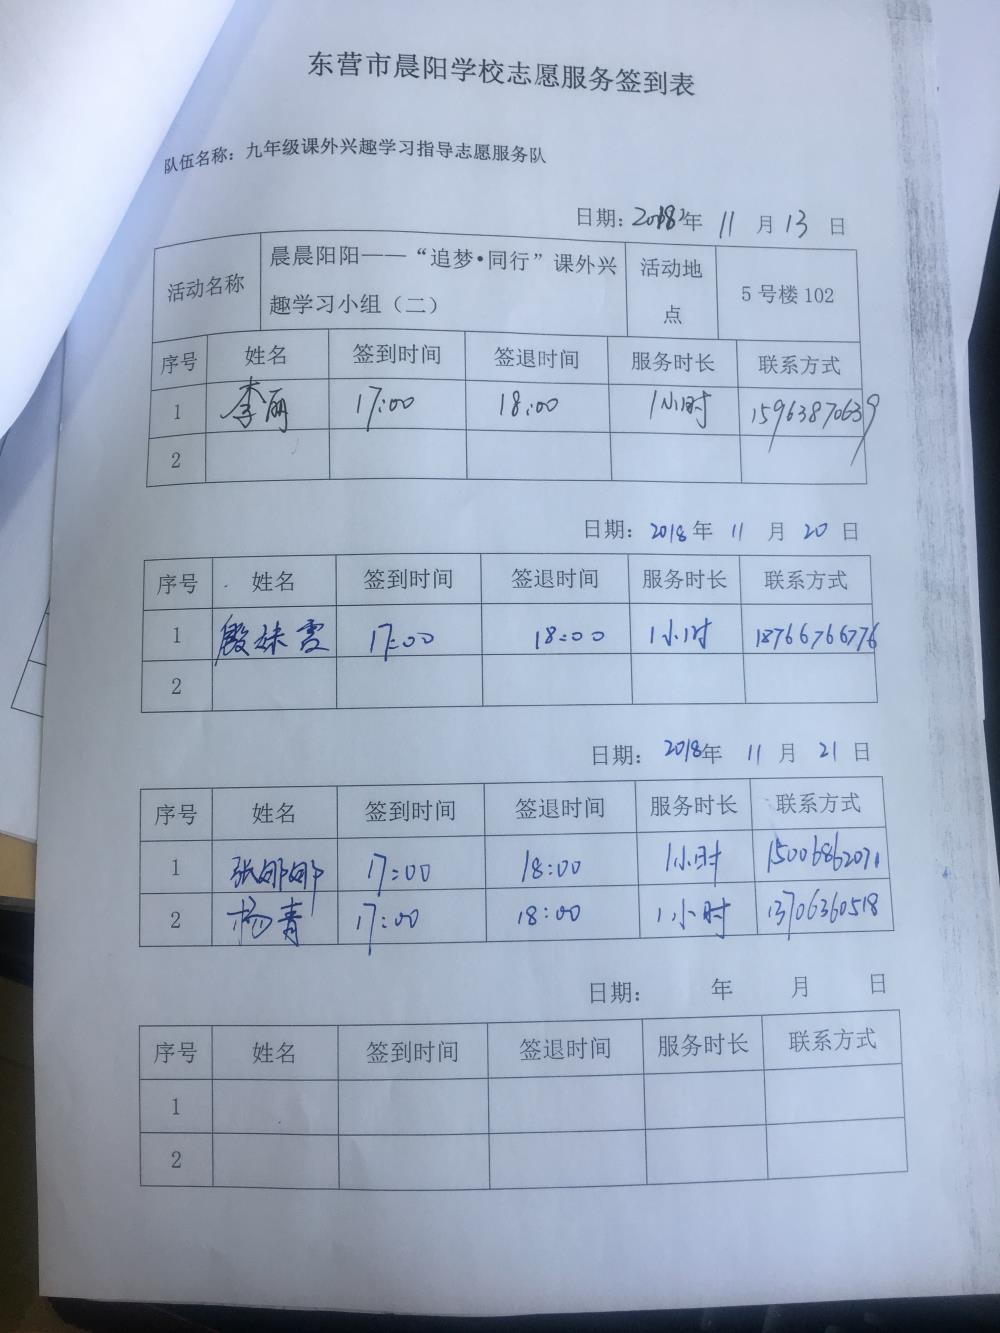 东营市晨阳学校志愿服务签到表
队伍名称：九年级课外兴趣学习指导志愿服务队
日期：2018年 11 月 13 日
活动名称 晨晨阳阳——“追梦•同行”课外兴趣学习小组（二） 活动地点 5号楼102
序号 姓名 签到时间 签退时间 服务时长 联系方式
1 李丽 17:00 18:00 1小时 15963870639
2
日期：2018年 11 月 20 日
序号 姓名 签到时间 签退时间 服务时长 联系方式
1 殷妹霞 17:00 18:00 1小时 18766766776
2
日期：2018年 11 月 21 日
序号 姓名 签到时间 签退时间 服务时长 联系方式
1 张娜娜 17:00 18:00 1小时 15006862071
2 杨青 17:00 18:00 1小时 13706360518
日期： 年 月 日
序号 姓名 签到时间 签退时间 服务时长 联系方式
1
2